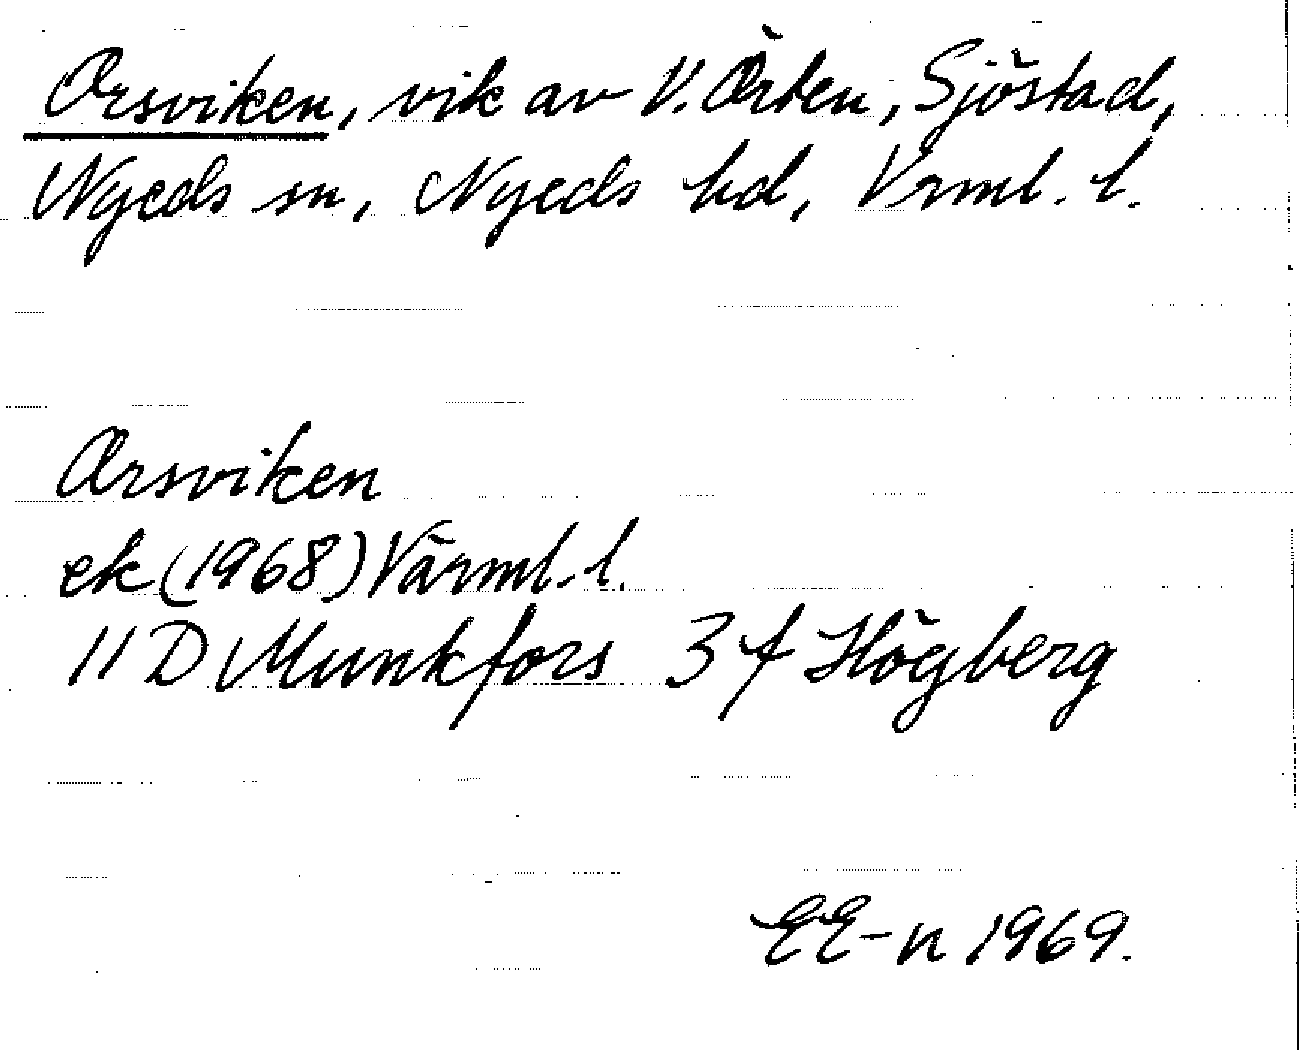 Orsviken, vik av V. Örten, Sjöstad,
Nyeds sn, Nyeds hd, Vrml. l.
Orsviken
ek (1968) Värml. l.
11 D Munkfors 3 f Högberg
EE-n 1969.